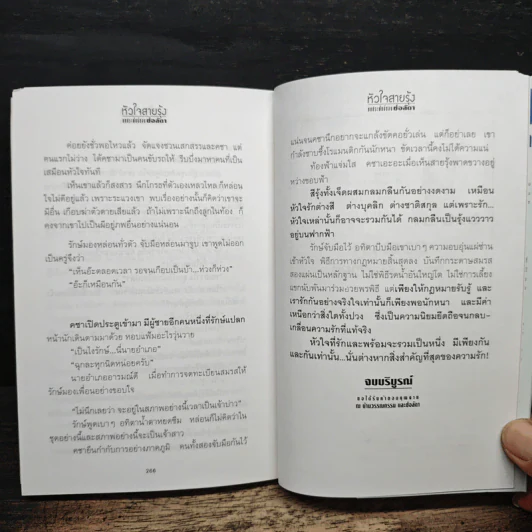 หัวใจสายรุ้ง
ค่อยยังชั่วพอไหวแล้ว จัดแจงชวนเสกสรรและคชา แต่
คนแรกไม่ว่าง ได้คชามาเป็นคนขับรถให้ รีบบึ่งมาหาคนที่เป็น
เสมือนหัวใจทันที
เห็นเขาแล้วก็สงสาร นึกโกรธที่ตัวเองเหลวไหล ก็หล่อน
ใจไม่ดีอยู่แล้ว เพราะระแวงเขา พบเรื่องอย่างนั้นก็คิดว่าเขาจะ
มีอื่น เกือบฆ่าตัวตายเสียแล้ว ถ้าไม่เพราะนึกถึงลูกในท้อง ก็
คงจากเขาไปเป็นผีอยู่ภพอื่นอย่างแน่นอน
รักษ์มองหล่อนทั่วตัว จับมือหล่อนมาจูบ เขาพูดไม่ออก
เป็นครู่จึงว่า
"เห็นอ๊ะตลอดเวลา รอจนเกือบเป็นบ้า...ห่วงก็ห่วง"
"อ๊ะก็เหมือนกัน"
คชาเปิดประตูเข้ามา มีผู้ชายอีกคนหนึ่งที่รักษ์แปลก
หน้านักเดินตามมาด้วย หอบแฟ้มอะไรวุ่นวาย
"เป็นไงรักษ์...นี่นายอำเภอ"
"ฉุกละหุกนิดหน่อยครับ"
นายอำเภออารมณ์ดี เมื่อทำการจดทะเบียนสมรสให้
รักษ์มองเพื่อนอย่างขอบใจ
"ไม่นึกเลยว่า จะอยู่ในสภาพอย่างนี้เวลาเป็นเจ้าบ่าว"
รักษ์พูดเบา ๆ อทิตาน้ำตาหยดซึม หล่อนก็ไม่คิดว่าใน
ชุดอย่างนี้และสภาพอย่างนี้จะเป็นเจ้าสาว
คชายืนกำกับการอย่างภาคภูมิ คนทั้งสองจับมือกันไว้
266
หัวใจสายรุ้ง
แน่นจนคชานึกอยากจะแกล้งขัดคอยั่วเล่น แต่ก็อย่าเลย เขา
กำลังซาบซึ้งโรแมนติกกันนักหนา ขัดเวลานี้คงไม่ได้ความแน่
ท้องฟ้าแจ่มใส คชาเอะอะเมื่อเห็นสายรุ้งพาดขวางอยู่
ตรงขอบฟ้า
สีรุ้งทั้งเจ็ดผสมกลมกลืนกันอย่างงดงาม เหมือน
หัวใจรักต่างสี ต่างบุคลิก ต่างชาติสกุล แต่เพราะรัก...
หัวใจเหล่านั้นก็อาจจะรวมกันได้ กลมกลืนเป็นรุ้งแวววาว
อยู่บนฟากฟ้า
รักษ์จับมือไว้ อทิตาบีบมือเขาเบา ๆ ความอบอุ่นแผ่ซ่าน
เข้าหัวใจ พิธีการทางกฎหมายสิ้นสุดลง บันทึกกระดาษสมรส
สองแผ่นเป็นหลักฐาน ไม่ใช่พิธีรดน้ำอันใหญ่โต ไม่ใช่การเลี้ยง
แขกนับพันมาร่วมอวยพรพิธี แต่เพียงให้กฎหมายรับรู้ และ
เรารักกันอย่างจริงใจเท่านั้นก็เพียงพอนักหนา และมีค่า
เหนือกว่าสิ่งใดทั้งปวง ซึ่งเป็นความนิยมยึดถือจนกลบ-
เกลื่อนความรักที่แท้จริง
หัวใจที่รักและพร้อมจะรวมเป็นหนึ่ง มีเพียงกัน
และกันเท่านั้น...นั่นต่างหากสิ่งสำคัญที่สุดของความรัก!
จบบริบูรณ์